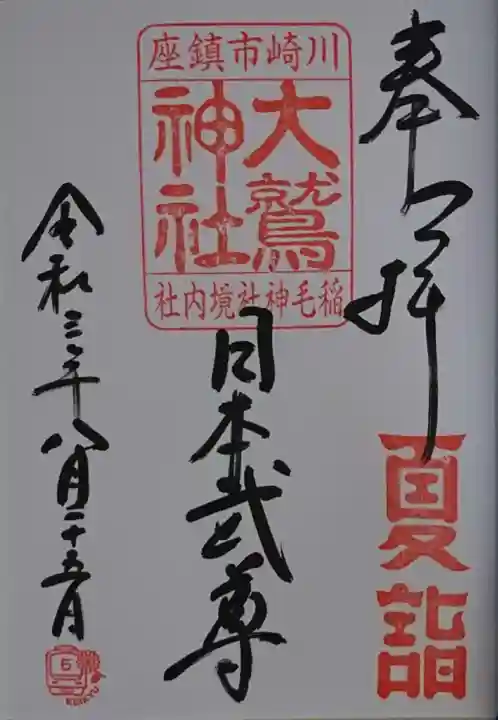 奉拝
夏詣
川崎市鎮座
大鷲
神社
稲毛神社境内社
日本武尊
令和三年八月二十五日